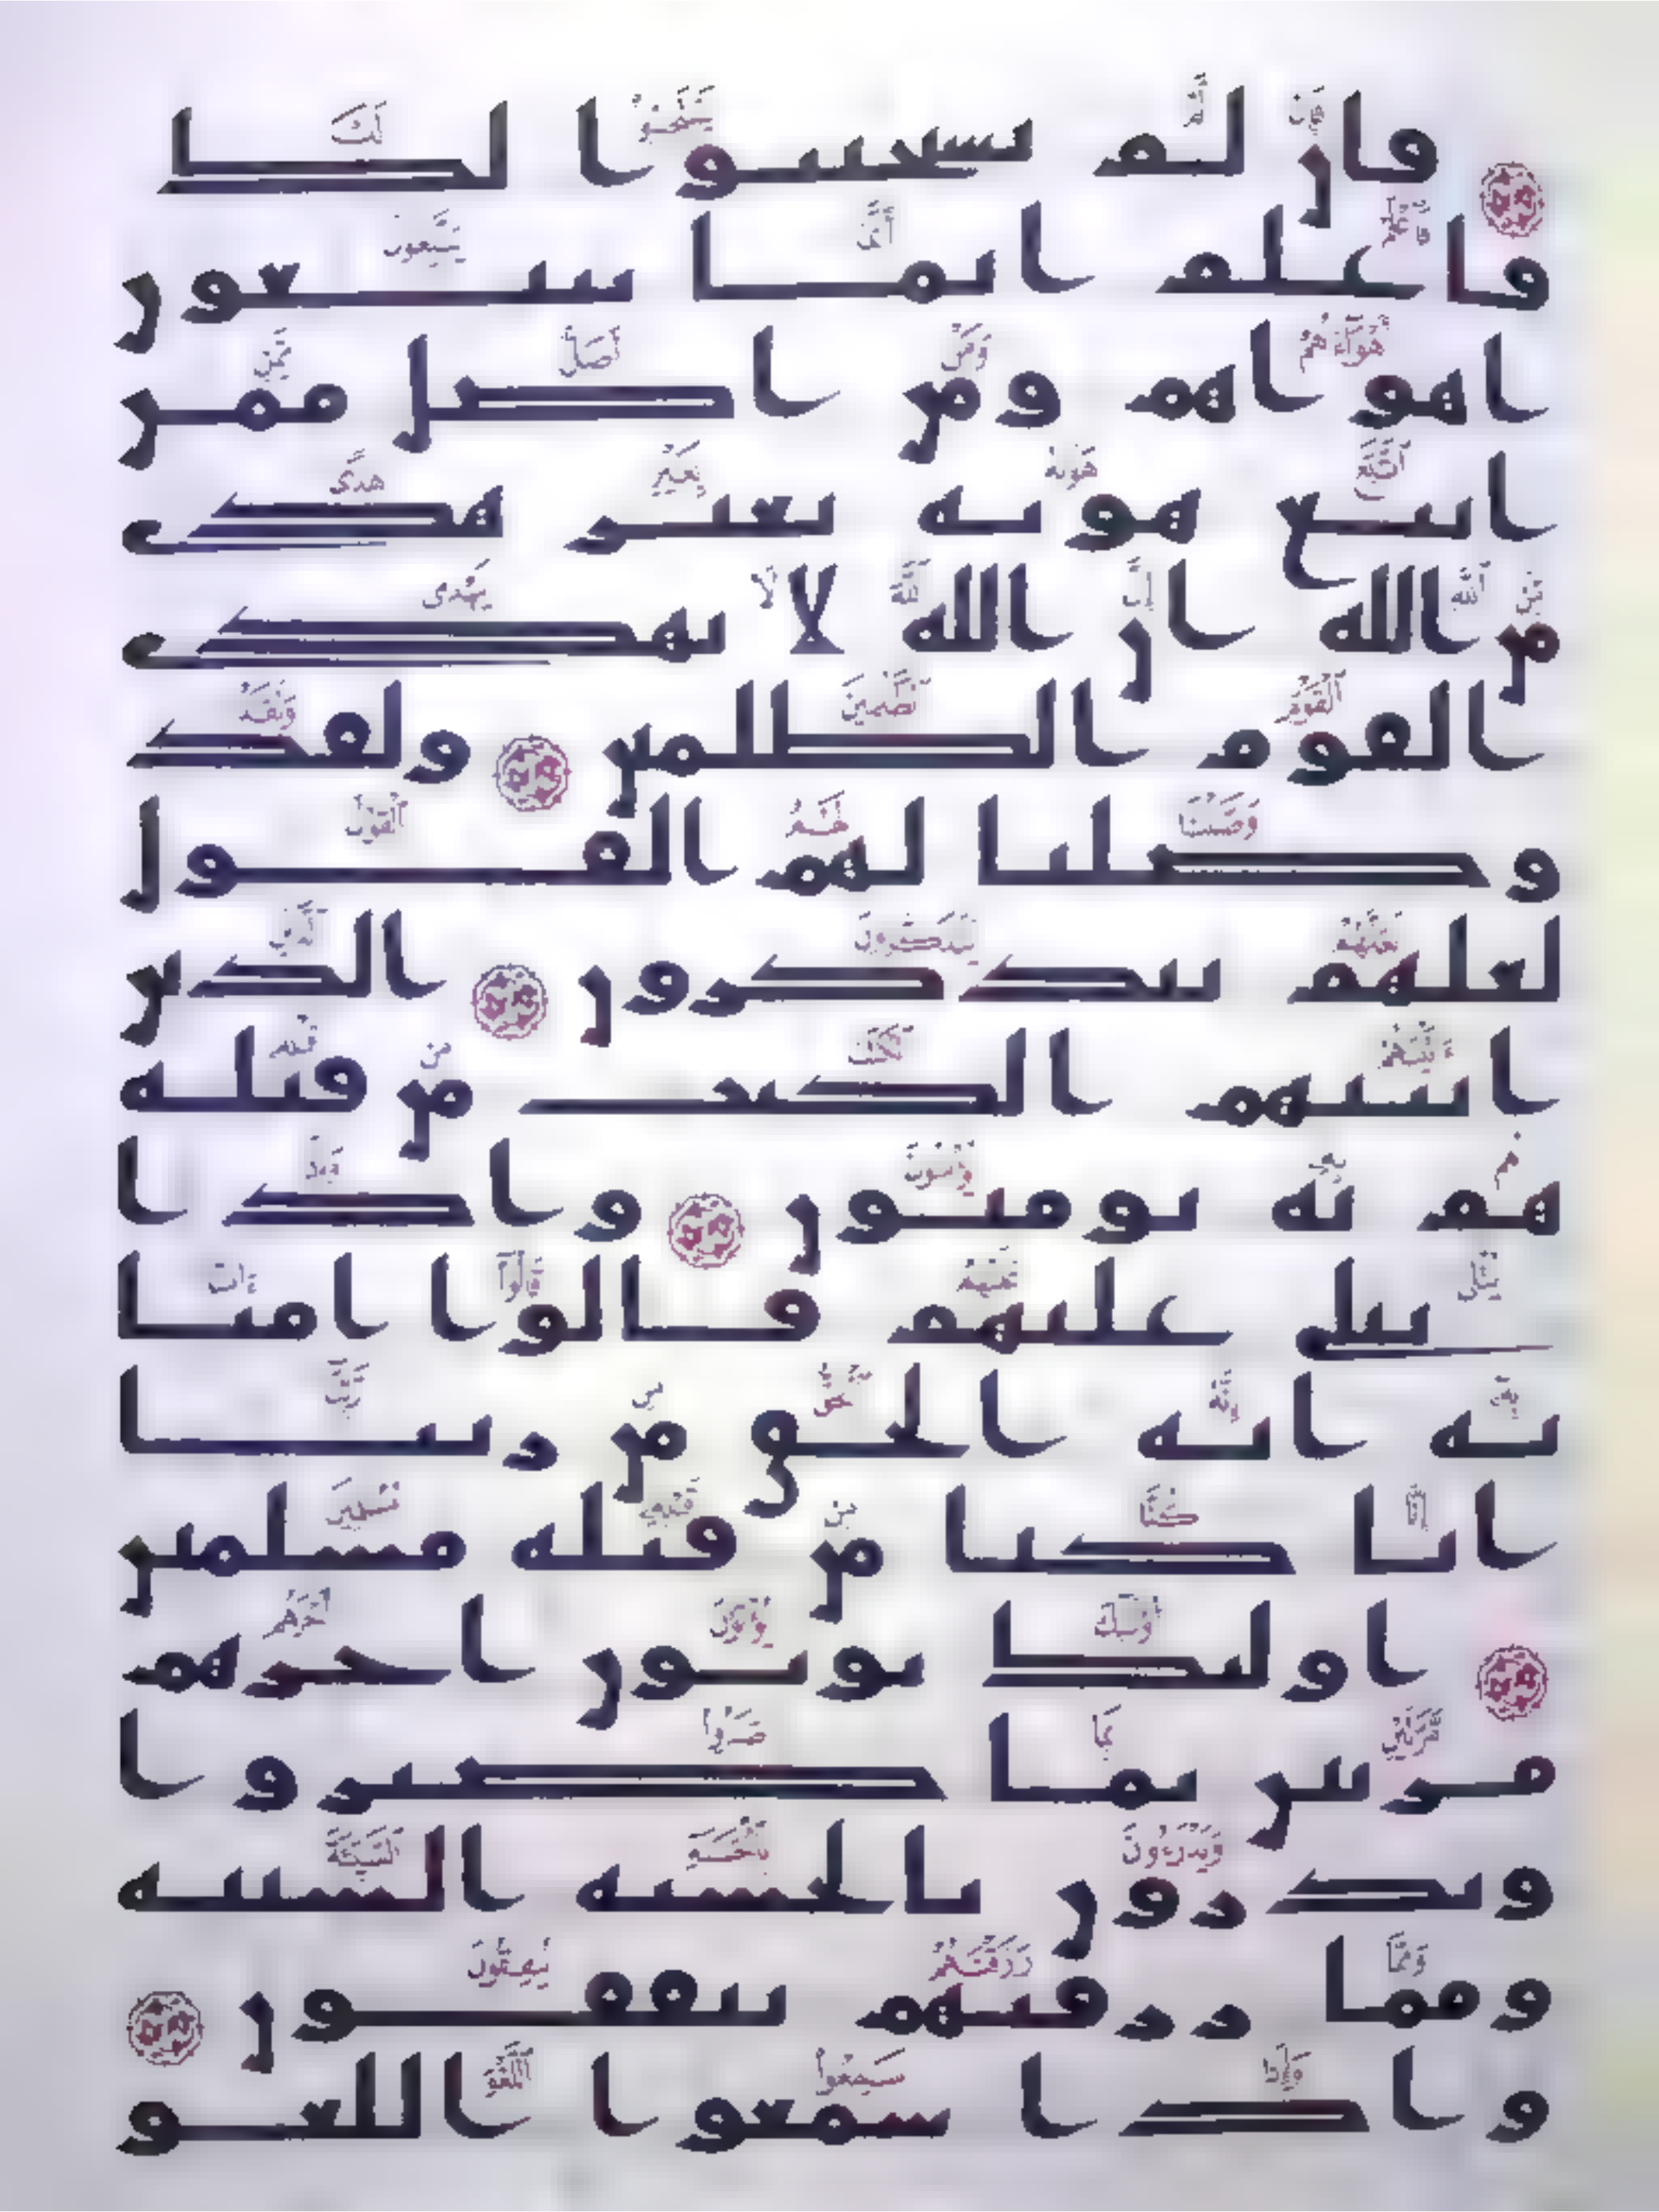 فان لم يستجيبوا لك
فاعلم انما يتبعون
اهواهم ومن اضل ممن
اتبع هويه بغير هدى
من الله ان الله لا يهدى
القوم الظلمين ولقد
وصلنا لهم القول
لعلهم يتذكرون الذين
اتينهم الكتب من قبله
هم به يومنون واذا
يتلى عليهم قالوا امنا
به انه الحق من ربنا
انا كنا من قبله مسلمين
اوليك يوتون اجرهم
مرتين بما صبروا
ويدرون بالحسنه السييه
ومما رزقنهم ينفقون
واذا سمعوا اللغو